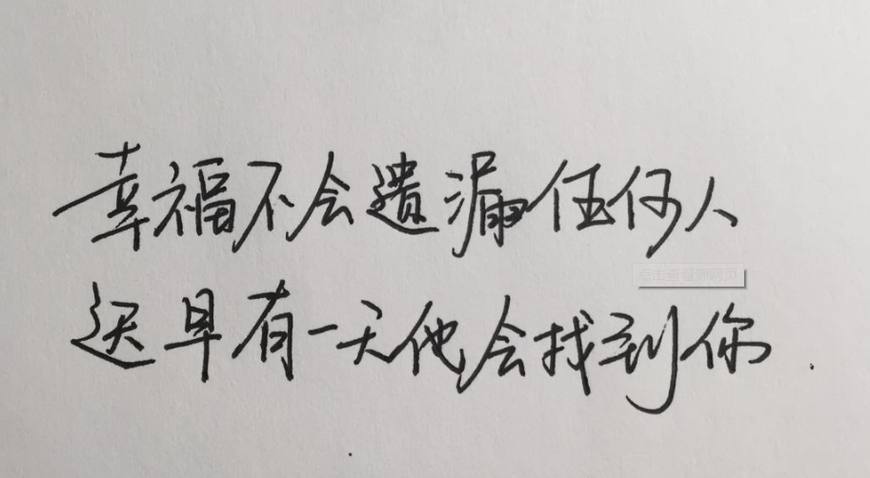 幸福不会遗漏任何人
迟早有一天他会找到你